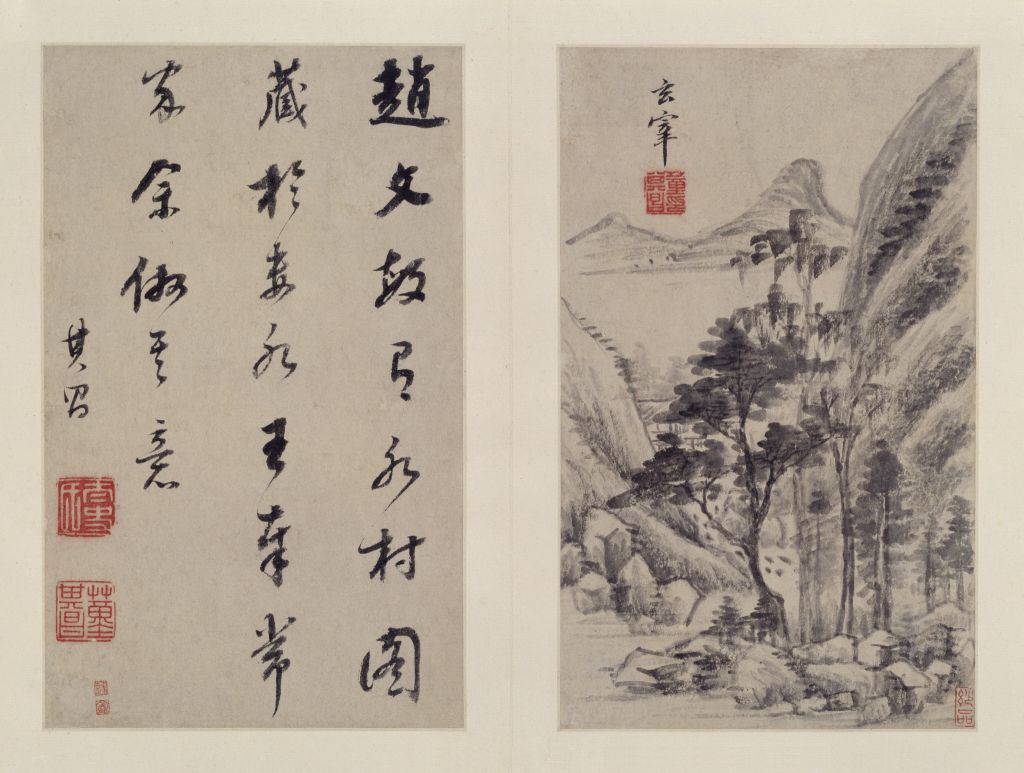 玄宰
趙文敏有水村圖
藏於婁水王奉常
家余倣其意
其昌
董其昌
妙品